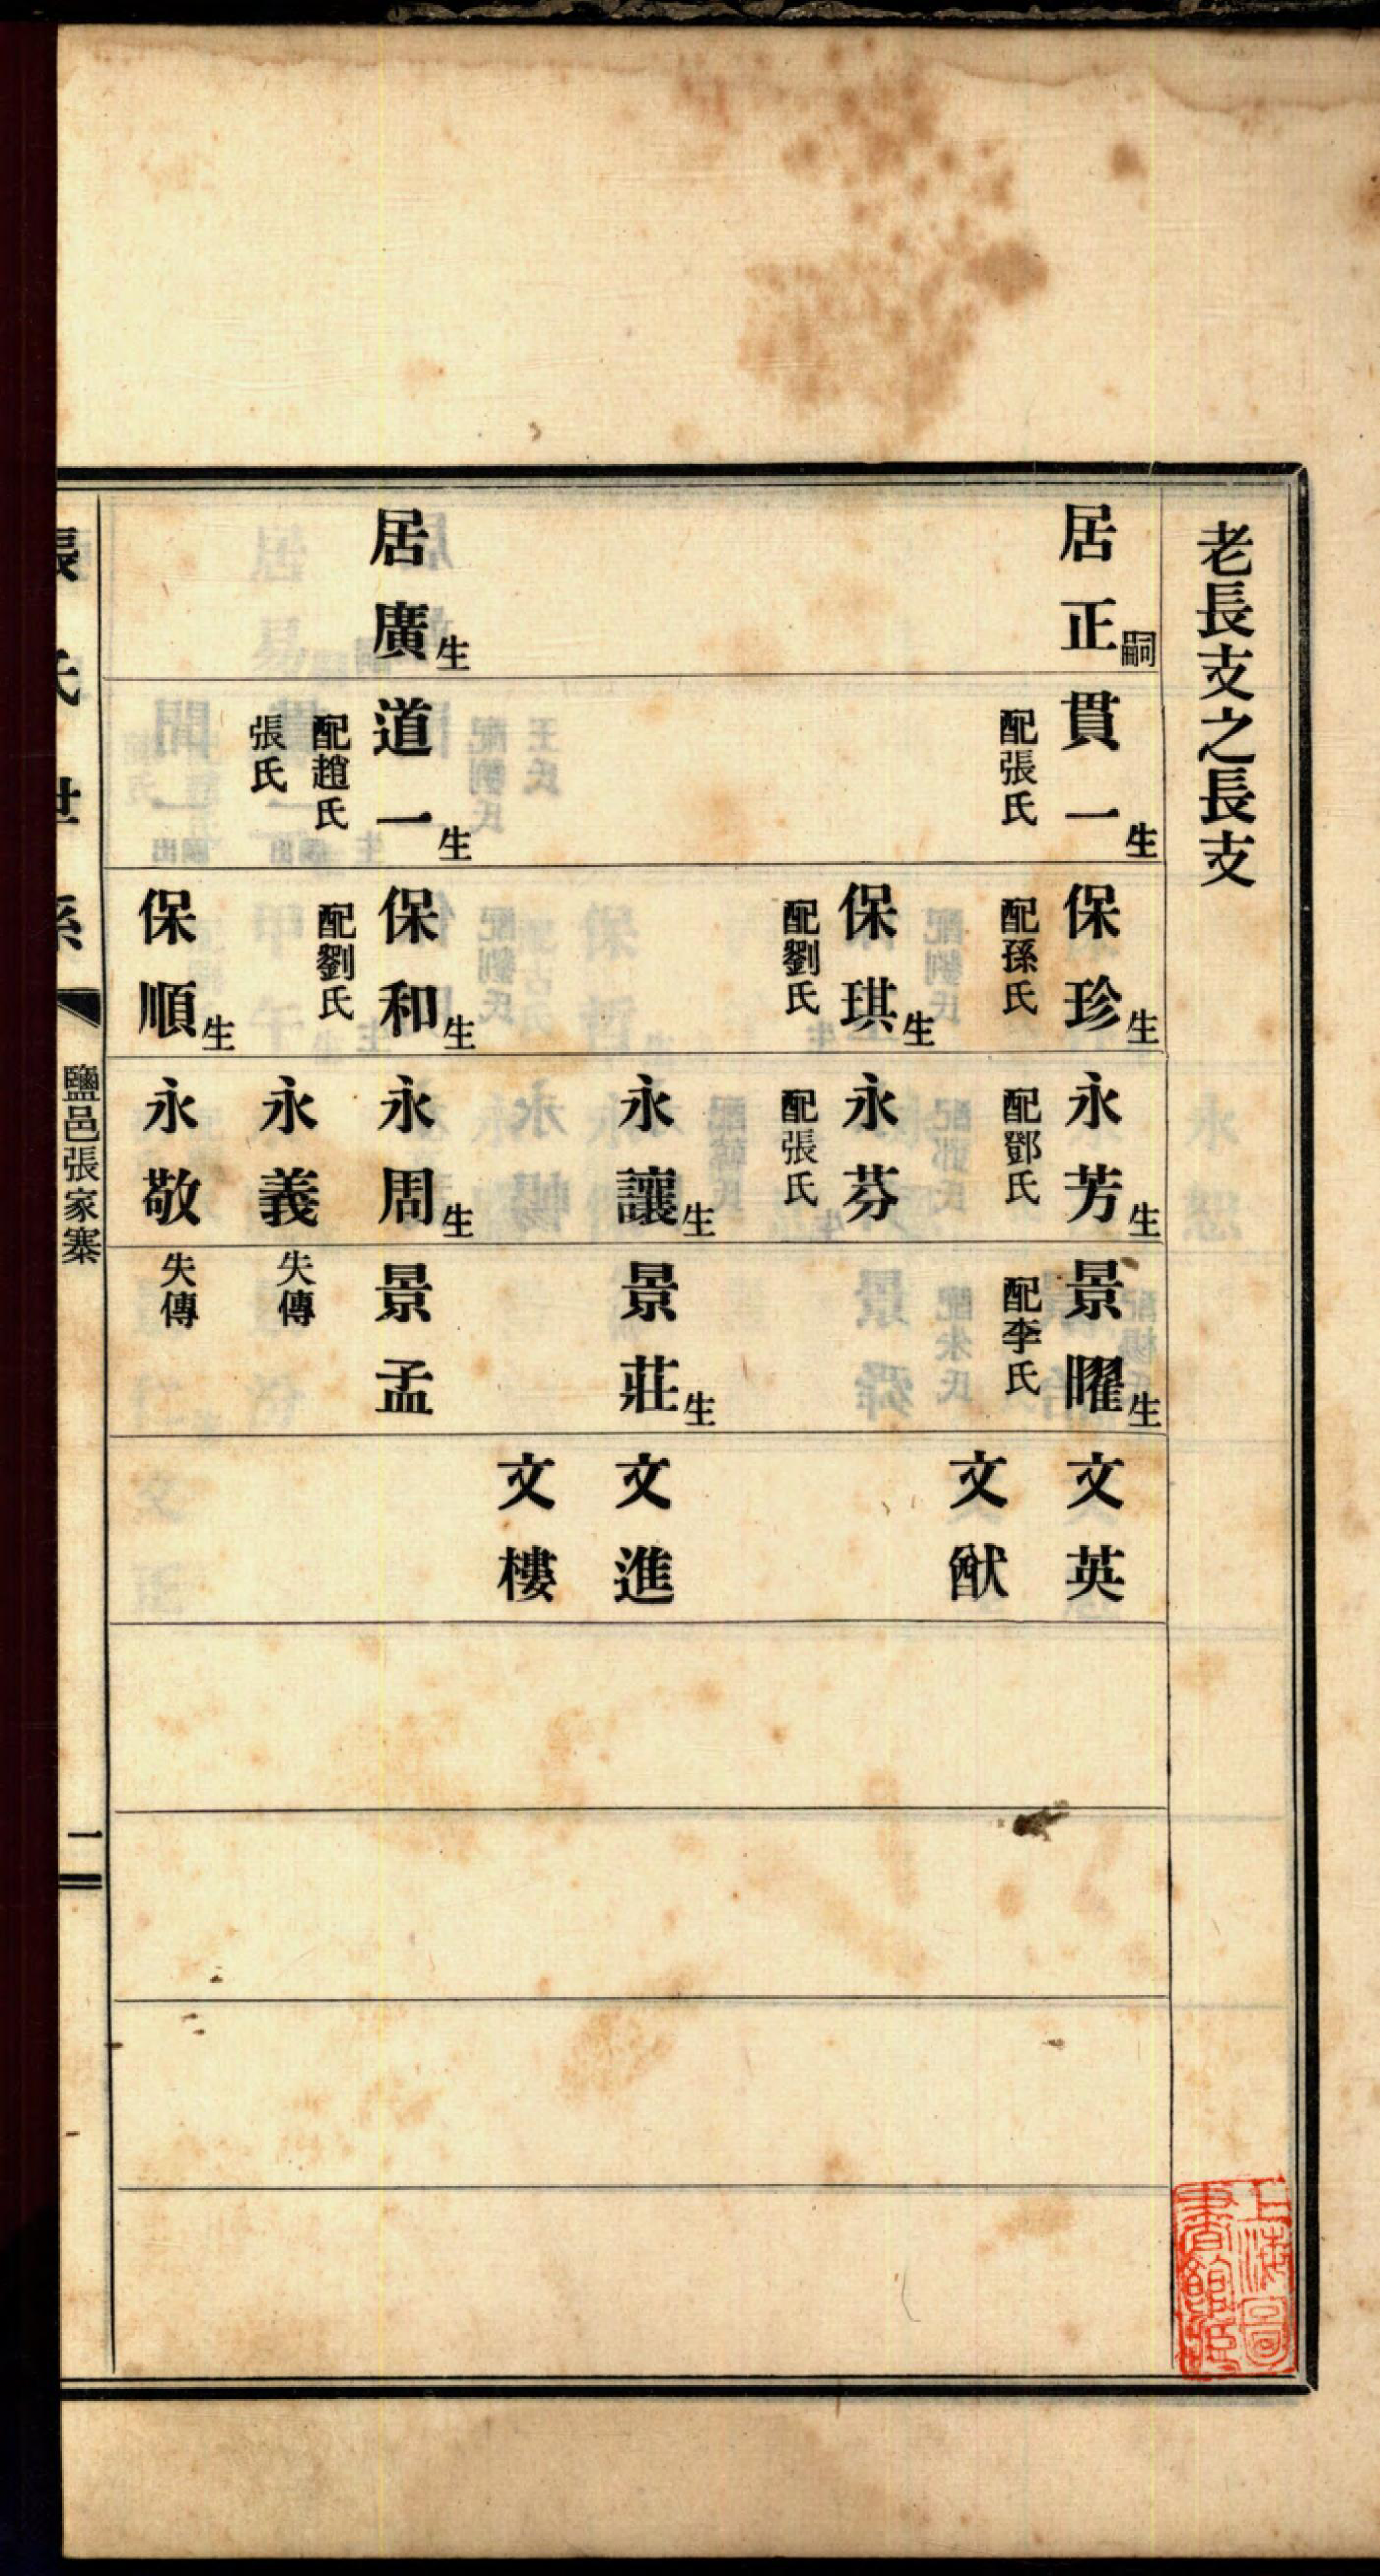 老長支之長支
居正嗣
居廣生
貫一生
配張氏
道一生
配趙氏
張氏
保珍生
配孫氏
保琪生
配劉氏
保和生
配劉氏
保順生
永芳生
配鄧氏
永芬
配張氏
永讓生
永周生
永義
永敬
景曜生
配李氏
景莊生
景孟
失傳
失傳
文英
文猷
文進
文樓
張氏世系
鹽邑張家寨
一
上海圖
書館藏